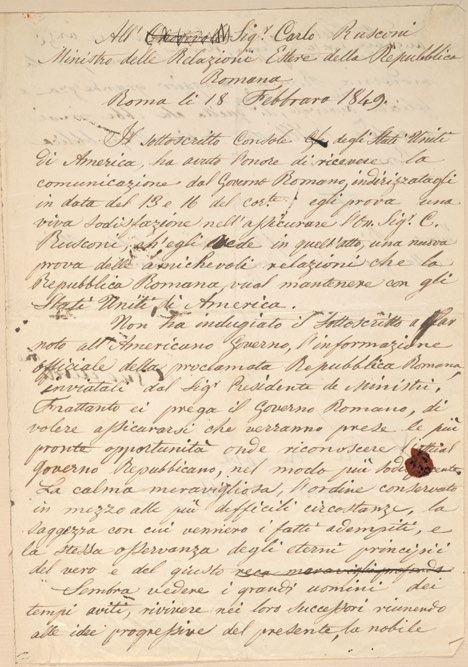 All' Sig.r Carlo Rusconi
Ministro delle Relazioni Estere della Repubblica
Romana
Roma li 18 Febbraro 1849.
Il sottoscritto Console degli Stati Uniti
di America, ha avuto l'onore di ricevere la
comunicazione dal Governo Romano, indirizzatagli
in data del 13 e 16 del cor.te egli prova una
viva sodisfazione nell'assicurare l'On. Sig.r C.
Rusconi, ch'egli vede in quest'atto, una nuova
prova delle amichevoli relazioni che la
Repubblica Romana, vuol mantenere con gli
Stati Uniti di America.
Non ha indugiato il sottoscritto a far
noto all'Americano Governo, l'informazione
officiale della proclamata Repubblica Romana,
inviatali dal Sig.r Presidente de Ministri,
Frattanto ei prega il Governo Romano, di
volere assicurarsi che verranno prese le più
pronte opportunità onde riconoscere
governo Repubblicano, nel modo più
La calma meravigliosa, l'ordine conservato
in mezzo alle più difficili circostanze, la
saggezza con cui vennero i fatti adempiti, e
la stessa osservanza degli eterni principii
del vero e del giusto reca maraviglia profonda
Sembra vedere i grandi uomini dei
tempi aviti, rivivere nei loro successori riunendo
alle idee progressive del presente la nobile